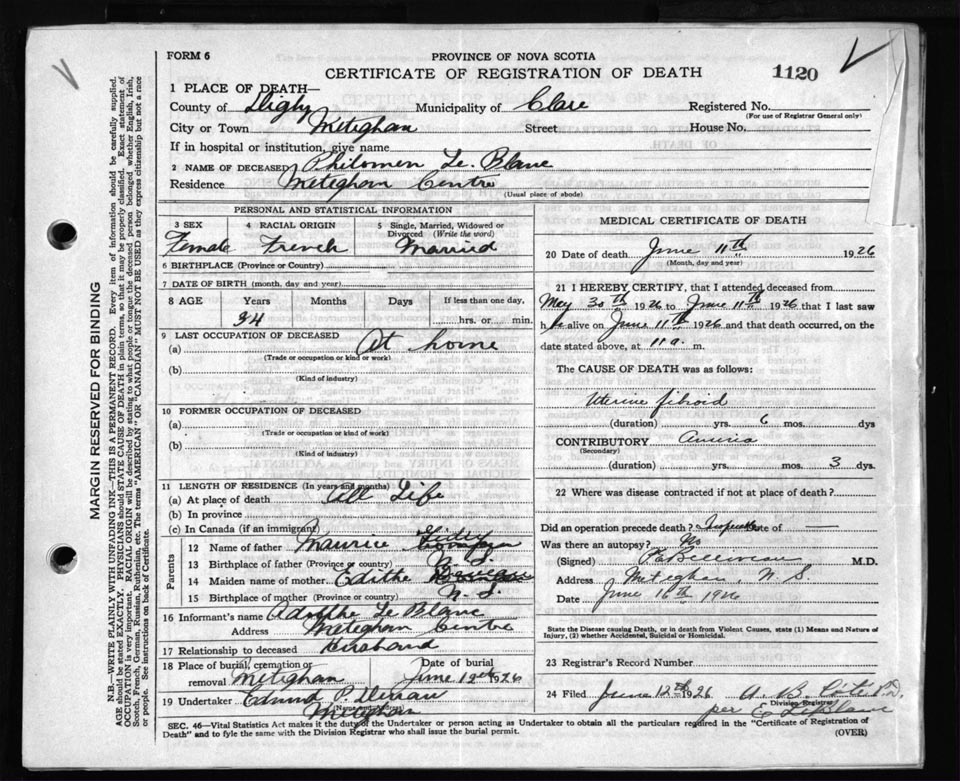 FORM 6
PROVINCE OF NOVA SCOTIA
CERTIFICATE OF REGISTRATION OF DEATH
1120
1 PLACE OF DEATH—
County of Digby Municipality of Clare Registered No.
(For use of Registrar General only)
City or Town Meteghan Street House No.
If in hospital or institution, give name
2 NAME OF DECEASED Philomen Le Blanc
Residence Meteghan Centre
(Usual place of abode)
PERSONAL AND STATISTICAL INFORMATION
3 SEX 4 RACIAL ORIGIN 5 Single, Married, Widowed or Divorced (Write the word)
Female French Married
6 BIRTHPLACE (Province or Country)
7 DATE OF BIRTH (month, day and year)
8 AGE Years Months Days If less than one day,
hrs. or min.
9 LAST OCCUPATION OF DECEASED
(a) At home
(Trade or occupation or kind or work)
(b)
(Kind of industry)
10 FORMER OCCUPATION OF DECEASED
(a)
(Trade or occupation or kind of work)
(b)
(Kind of industry)
11 LENGTH OF RESIDENCE (In years and months)
(a) At place of death All Life
(b) In province
(c) In Canada (if an immigrant)
Parents
12 Name of father Maurice
13 Birthplace of father (Province or country) N. S.
14 Maiden name of mother Edithe
15 Birthplace of mother (Province or country) N. S.
16 Informant's name Adolphe Le Blanc
Address Meteghan Centre
17 Relationship to deceased Husband
18 Place of burial, cremation or removal Meteghan Date of burial June 12th 1926
19 Undertaker Edmund P.
(Name and address)
Meteghan
MEDICAL CERTIFICATE OF DEATH
20 Date of death June 11th 1926
(Month, day and year)
21 I HEREBY CERTIFY, that I attended deceased from
May 30th 1926 to June 11th 1926 that I last saw
h er alive on June 11th 1926 and that death occurred, on the
date stated above, at 11 a. m.
The CAUSE OF DEATH was as follows:
Uterine fibroid
(duration) yrs. 6 mos. dys
CONTRIBUTORY
(Secondary)
(duration) yrs. mos. 3 dys.
22 Where was disease contracted if not at place of death?
Did an operation precede death? Date of —
Was there an autopsy? No
(Signed) M.D.
Address Meteghan, N. S.
Date June 1926
State the Disease causing Death, or in death from Violent Causes, state (1) Means and Nature of
Injury, (2) whether Accidental, Suicidal or Homicidal.
23 Registrar's Record Number
24 Filed June 12th 1926 A. B.
Division Registrar
per E LeBlanc
SEC. 46—Vital Statistics Act makes it the duty of the Undertaker or person acting as Undertaker to obtain all the particulars required in the "Certificate of Registration of
Death" and to fyle the same with the Division Registrar who shall issue the burial permit.
(OVER)
MARGIN RESERVED FOR BINDING
N.B.—WRITE PLAINLY WITH UNFADING INK—THIS IS A PERMANENT RECORD. Every item of information should be carefully supplied.
AGE should be stated EXACTLY. PHYSICIANS should STATE CAUSE OF DEATH in plain terms, so that it may be properly classified. Exact statement of
OCCUPATION is very important. RACIAL ORIGIN will be described by stating to what people or tongue the deceased person belonged whether English, Irish,
Scotch, French, German, Russian, Ruthenian, etc. The terms "AMERICAN" OR "CANADIAN" MUST NOT BE USED as they express citizenship but not a race
or people. See instructions on back of Certificate.